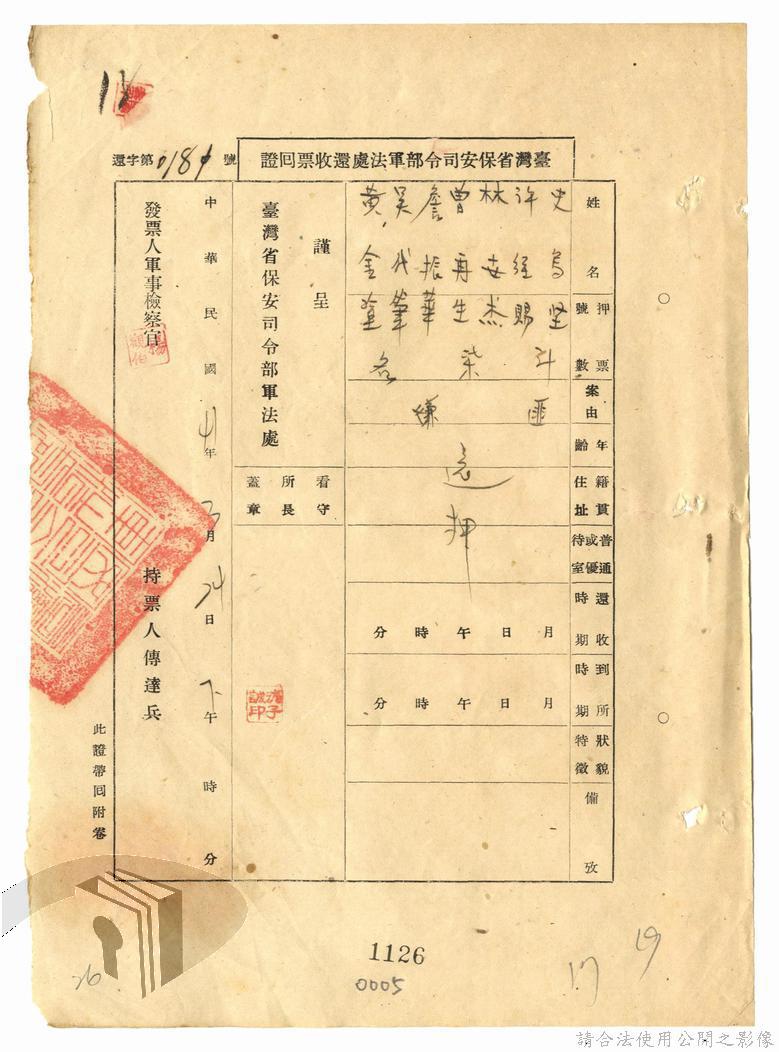 臺灣省保安司令部軍法處還收票回證
還字第0189號
姓名
押票號數
案由
年齡
籍貫住址
普通或優待室
還收時期
到所時期
狀貌特徵
備攷
史烏堅
許經賜
林安杰
曾再生
詹振華
吳代筆
黃金塗
斗
柒
名
匪嫌
還押
月日午時分
月日午時分
謹呈
臺灣省保安司令部軍法處
看守所長蓋章
中華民國41年3月24日下午時分
發票人軍事檢察官
持票人傳達兵
此證帶回附卷
1126
0005
26
17
19
請合法使用公開之影像